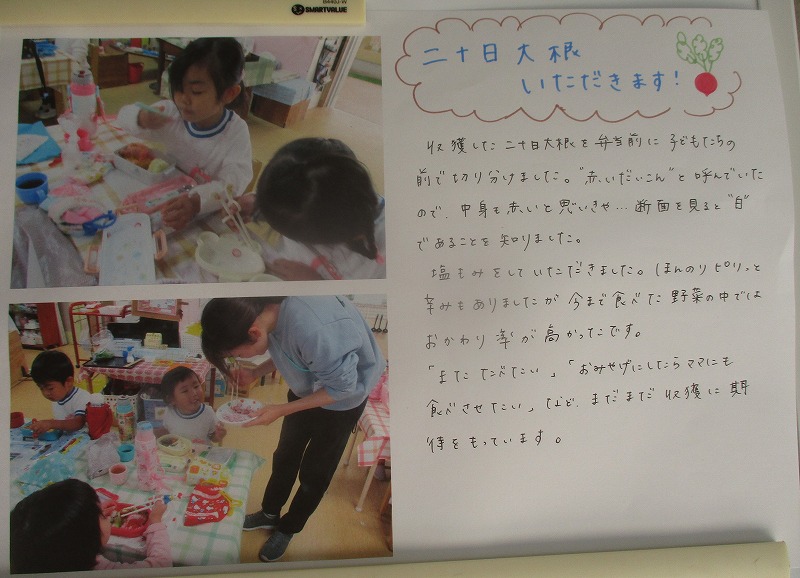 8440J-W
SMARTVALUE
二十日大根
いただきます!
収獲した二十日大根を弁当前に子どもたちの
前で切り分けました。"赤いだいこん"と呼んでいた
ので、中身も赤いと思いきや…断面を見ると"白"
であることを知りました。
塩もみをしていただきました。ほんのりピリッと
辛みもありましたが今まで食べた野菜の中では
おかわり率が高かったです。
「またたべたい」「おみやげにしたらママにも
食べさせたい」など、まだまだ収獲に期
待をもっています。